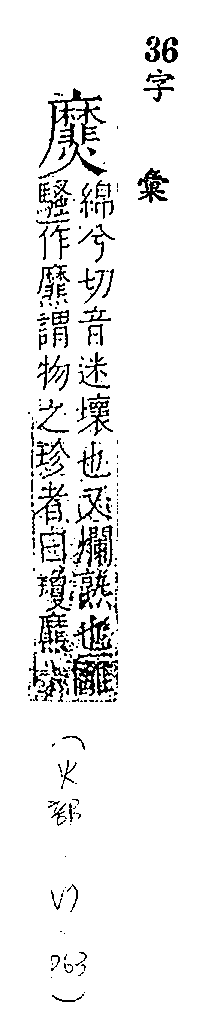 36
字彙
爢
綿兮切音迷壞也又爛熟也離
騷作爢謂物之珍者曰瓊爢
(火部